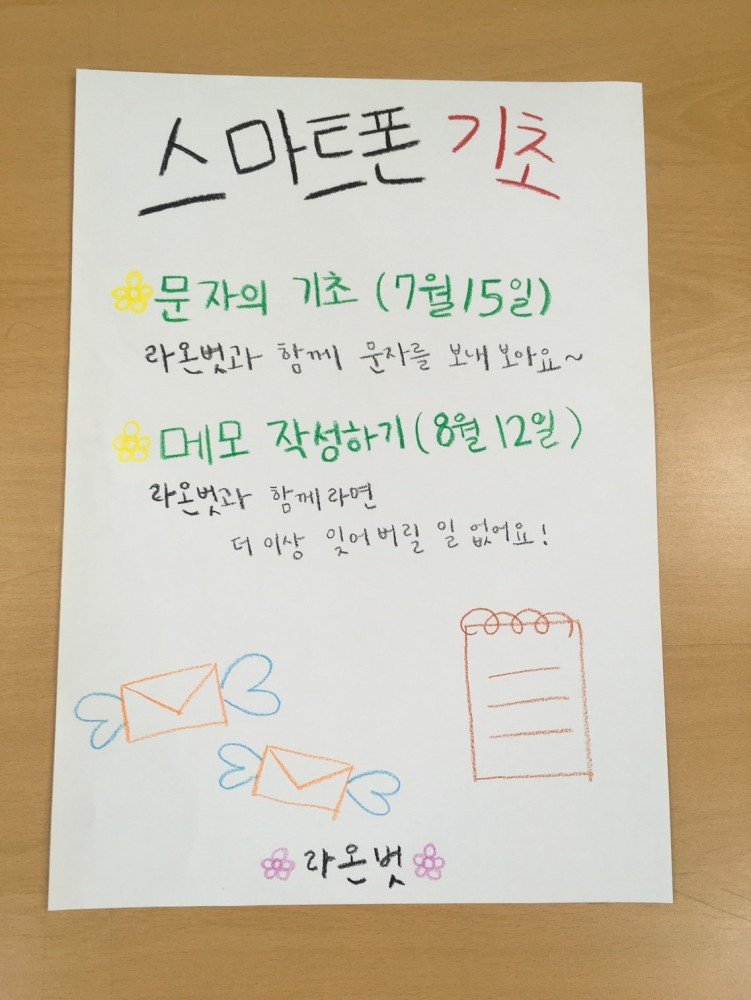 스마트폰 기초
문자의 기초 (7월 15일)
라온벗과 함께 문자를 보내 보아요~
메모 작성하기 (8월 12일)
라온벗과 함께라면
더 이상 잊어버릴 일 없어요!
라온벗